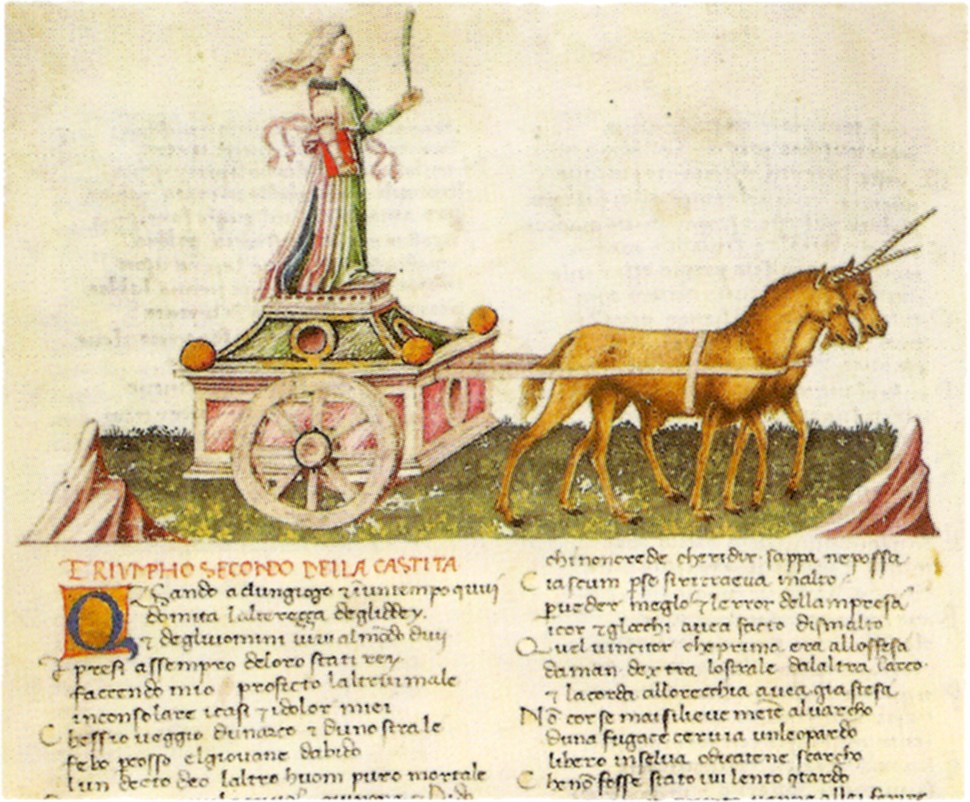 TRIVMPHO SECONDO DELLA CASTITA
Quando adungiogo ⁊ inuntempo quiui
domita lalterezza deglidey
⁊ degliuomini uiui almodo duy
I presi assempro deloro stati rey
faccendo mio profecto laltrui male
inconsolare icasi ⁊ idolor miei
Chessio ueggio dunarco ⁊ duno strale
febo elgiouane dabido
lun decto deo laltro huom puro mortale
chi non crede cheridir sappa nepossa
Ciascum p se inalto
p ueder meglo ⁊ lerror dellampresa
icor ⁊ glocchi auea facto dismalto
Quel uincitor cheprima era alloffesa
daman dextra lostrale dalaltra larco
⁊ lacorda allorecchia auea gia stesa
Nō corse maisilieue mēte aluarcho
duna fugace ceruia unleopardo
libero inselua odicatene scarcho
Chenō fosse stato iui lento tardo